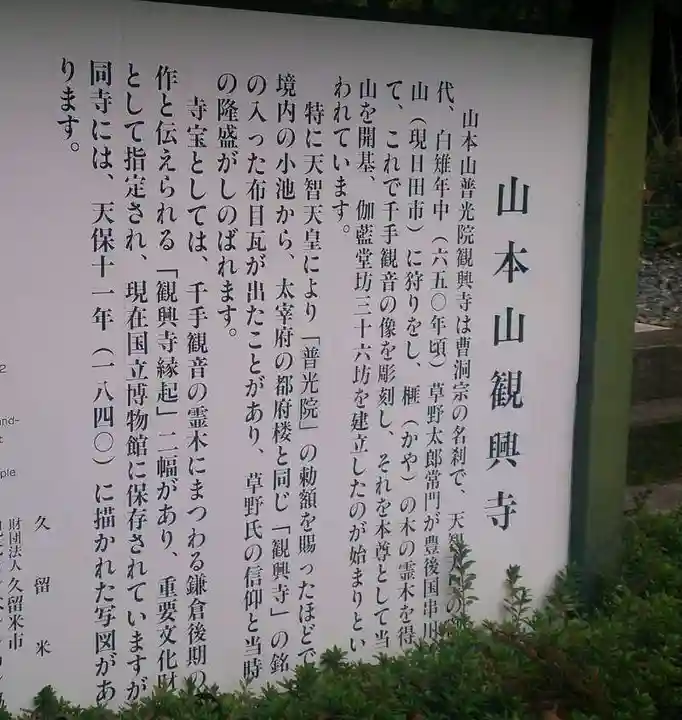 山本山観興寺
山本山普光院観興寺は曹洞宗の名刹で、天智
代、白雉年中（六五〇年頃）草野太郎常門が豊後国串川
山（現日田市）に狩りをし、榧（かや）の木の霊木を得
て、これで千手観音の像を彫刻し、それを本尊として当
山を開基、伽藍堂坊三十六坊を建立したのが始まりとい
われています。
特に天智天皇により「普光院」の勅額を賜ったほどで
境内の小池から、太宰府の都府楼と同じ「観興寺」の銘
の入った布目瓦が出たことがあり、草野氏の信仰と当時
の隆盛がしのばれます。
寺宝としては、千手観音の霊木にまつわる鎌倉後期の
作と伝えられる「観興寺縁起」二幅があり、重要文化財
として指定され、現在国立博物館に保存されていますが
同寺には、天保十一年（一八四〇）に描かれた写図があ
ります。
久留米
財団法人久留米市